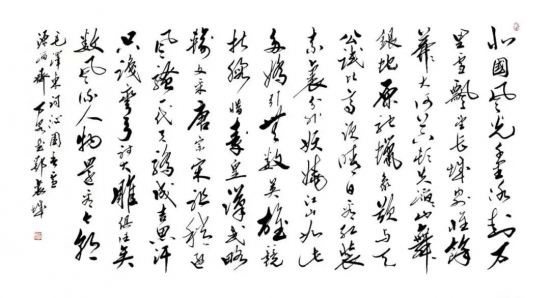 北國風光千里冰封万
里雪飘望长城内外惟馀
莽莽大河上下顿失滔滔山舞
银蛇原驰蜡象欲与天
公试比高须晴日看红装
素裹分外妖娆江山如此
多娇引無数英雄竞
折腰惜秦皇漢武略
输文采唐宗宋祖稍逊
風骚一代天骄成吉思汗
只识弯弓射大雕俱往矣
数風流人物還看今朝
毛澤東词沁園春雪